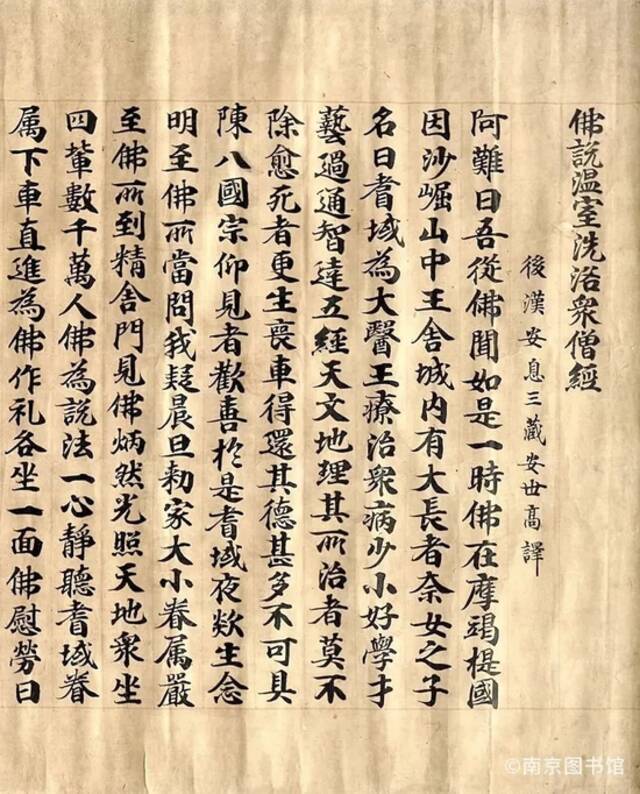 佛說温室洗浴衆僧經
後漢安息三藏安世高譯
阿難曰吾從佛聞如是一時佛在摩竭提國
因沙崛山中王舍城内有大長者奈女之子
名曰耆域為大醫王療治衆病少小好學才
藝過通智達五經天文地理其所治者莫不
除愈死者更生喪車得還其德甚多不可具
陳八國宗仰見者歡善於是耆域夜欻生念
明至佛所當問我疑晨旦勑家大小眷属嚴
至佛所到精舍門見佛炳然光照天地衆坐
四輩數千萬人佛為說法一心靜聽耆域眷
属下車直進為佛作礼各坐一面佛慰勞曰
©南京图书馆